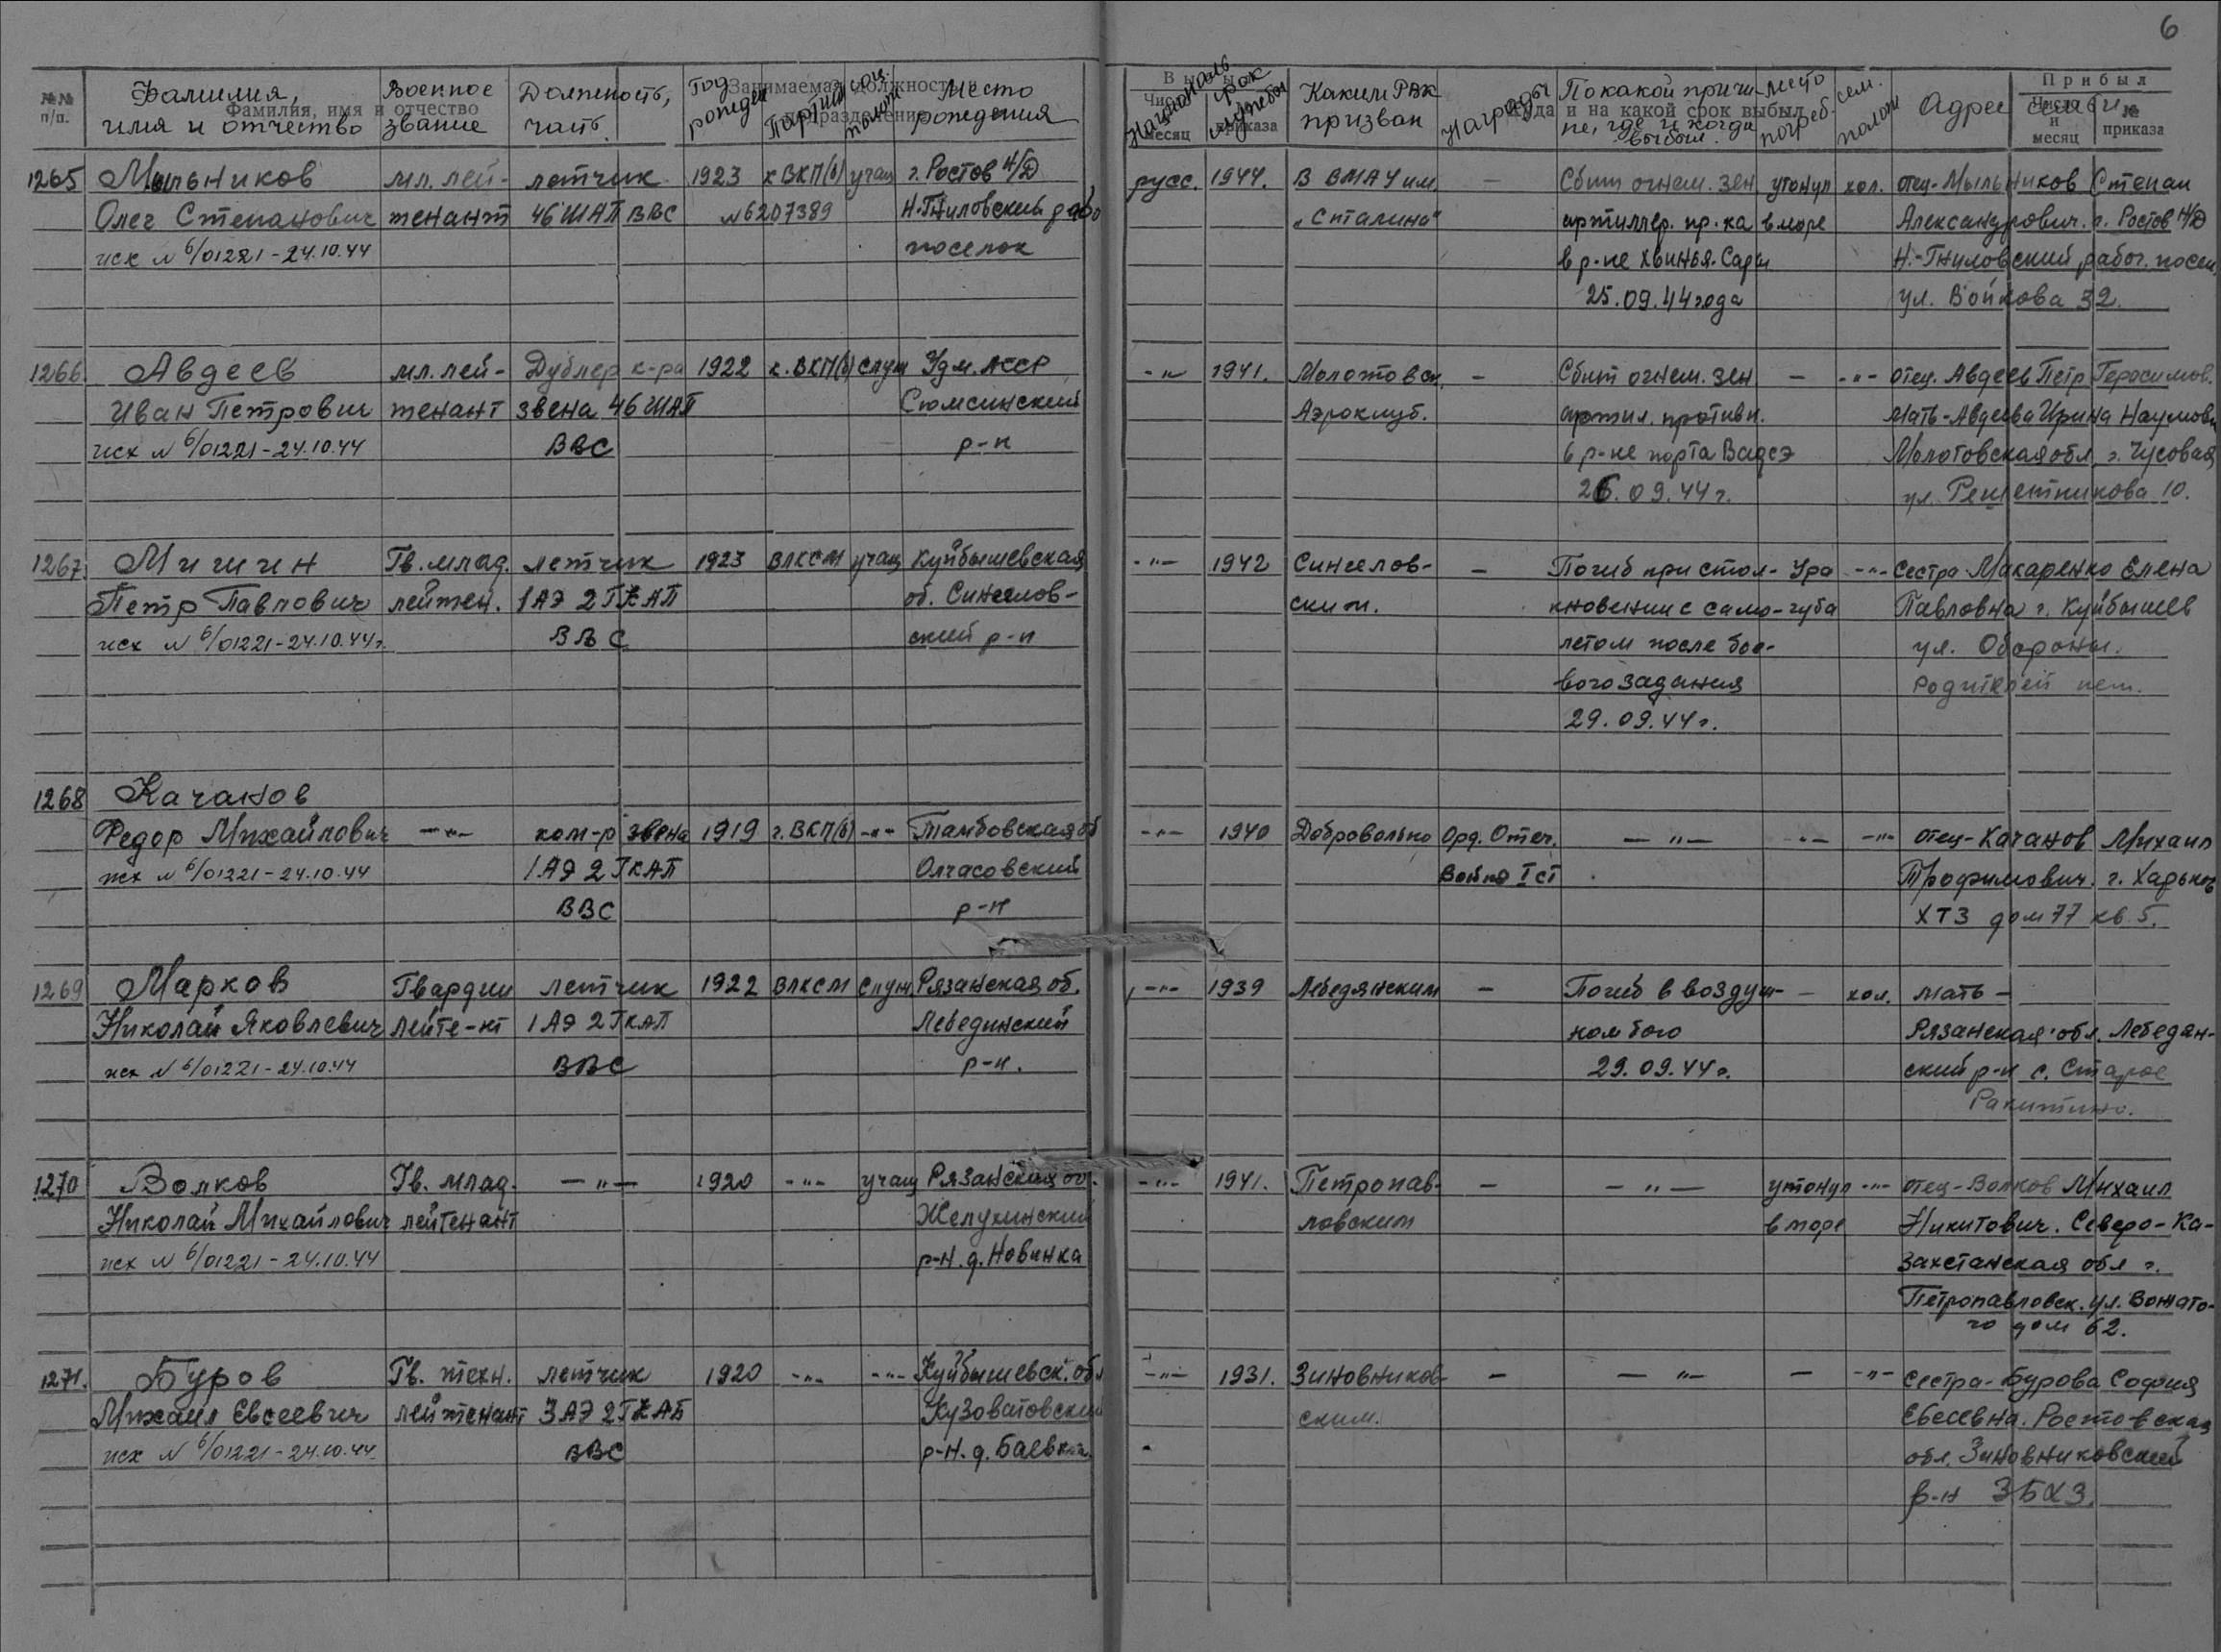 6
№№ п/п.
Фамилия, имя и отчество
Фамилия, имя и отчество
Военное звание
Должность, часть.
Год рожден
Занимаемая должность и подразделение
Партийн
соц. полож
Место рождения
Националь
Срок службы
Каким РВК призван
Награды
Куда и на какой срок выбыл
По какой причине, где и когда выбыл.
место погреб.
сем. полож
Адрес семьи
Прибыл
Число и месяц
№ приказа
1265 Мыльников мл. лей- летчик 1923 к ВКП(б) учащ г. Ростов Н/Д русс. 1944. В ВМАУ им. — Сбит огнем. зен утонул хол. отец-Мыльников Степан
Олег Степанович тенант 46 ШАП ВВС №6207389 Н.Гниловский рабо „Сталина" артиллер. пр-ка в море Александрович. г. Ростов Н/Д
исх № б/01221-24.10.44 поселок в р-не Н.-Гниловский рабоч. посел.
25.09.44 года ул. Войкова 32.
1266 Авдеев мл. лей- Дублер к-ра 1922 к. ВКП(б) служ Удм. АССР -"- 1941. Молотовск. — Сбит огнем. зен — -"- отец. Авдеев Петр Герасимов.
Иван Петрович тенант звена 46 ШАП Сюмсинский Аэроклуб. артил. противн. мать-Авдеева Ирина Наумовн
исх № б/01221-24.10.44 ВВС р-н в р-не порта Вадсэ Молотовская обл. г. Чусовая
26.09.44 г. ул. Решетникова 10.
1267. Мишин Гв. млад. летчик 1923 ВЛКСМ учащ Куйбышевская -"- 1942 Сингелов- — Погиб при стол- Ура -"- Сестра Макаренко Елена
Петр Павлович лейтен. 1 АЭ 2 ГКАП об. Сингелов- ским. кновении с само- губа Павловна г. Куйбышев
исх № б/01221-24.10.44 г. ВВС ский р-н летом после бое- ул. Обороны.
вого задания Родителей нет.
29.09.44 г.
1268 Качанов
Федор Михайлович -"- ком-р звена 1919 г. ВКП(б) -"- Тамбовская об -"- 1940 Добровольно Орд. Отеч. — " — -"- -"- отец-Качанов Михаил
исх № б/01221-24.10.44 1 АЭ 2 ГКАП Олчасовский Война I ст Трофимович. г. Харьков
ВВС р-н ХТЗ дом 77 кв. 5.
1269 Марков Гвардии летчик 1922 ВЛКСМ служ Рязанская об. -"- 1939 Лебедянским — Погиб в воздуш- — хол. мать —
Николай Яковлевич лейте-нт 1 АЭ 2 ГКАП Лебединский ном бою Рязанская обл. Лебедян-
исх № б/01221-24.10.44 ВВС р-н. 29.09.44 г. ский р-н с. Старое
Ракитино.
1270 Волков Гв. млад. — " — 1920 -"- учащ Рязанская об. -"- 1941. Петропав- — — " — утонул -"- отец-Волков Михаил
Николай Михайлович лейтенант Желухинский ловским в море Никитович. Северо-Ка-
исх № б/01221-24.10.44 р-н. д. Новинка захстанская обл г.
Петропавловск. ул. Вожато-
го дом 62.
1271. Буров Гв. техн. летчик 1920 -"- -"- Куйбышевск. обл -"- 1931. Зиновников- — — " — — -"- Сестра-Бурова София
Михаил Евсеевич лейтенант 3 АЭ 2 ГКАП Кузоватовский ским. Евсеевна. Ростовская
исх № б/01221-24.10.44. ВВС р-н. д. Баевка. обл. Зиновниковский
р-н